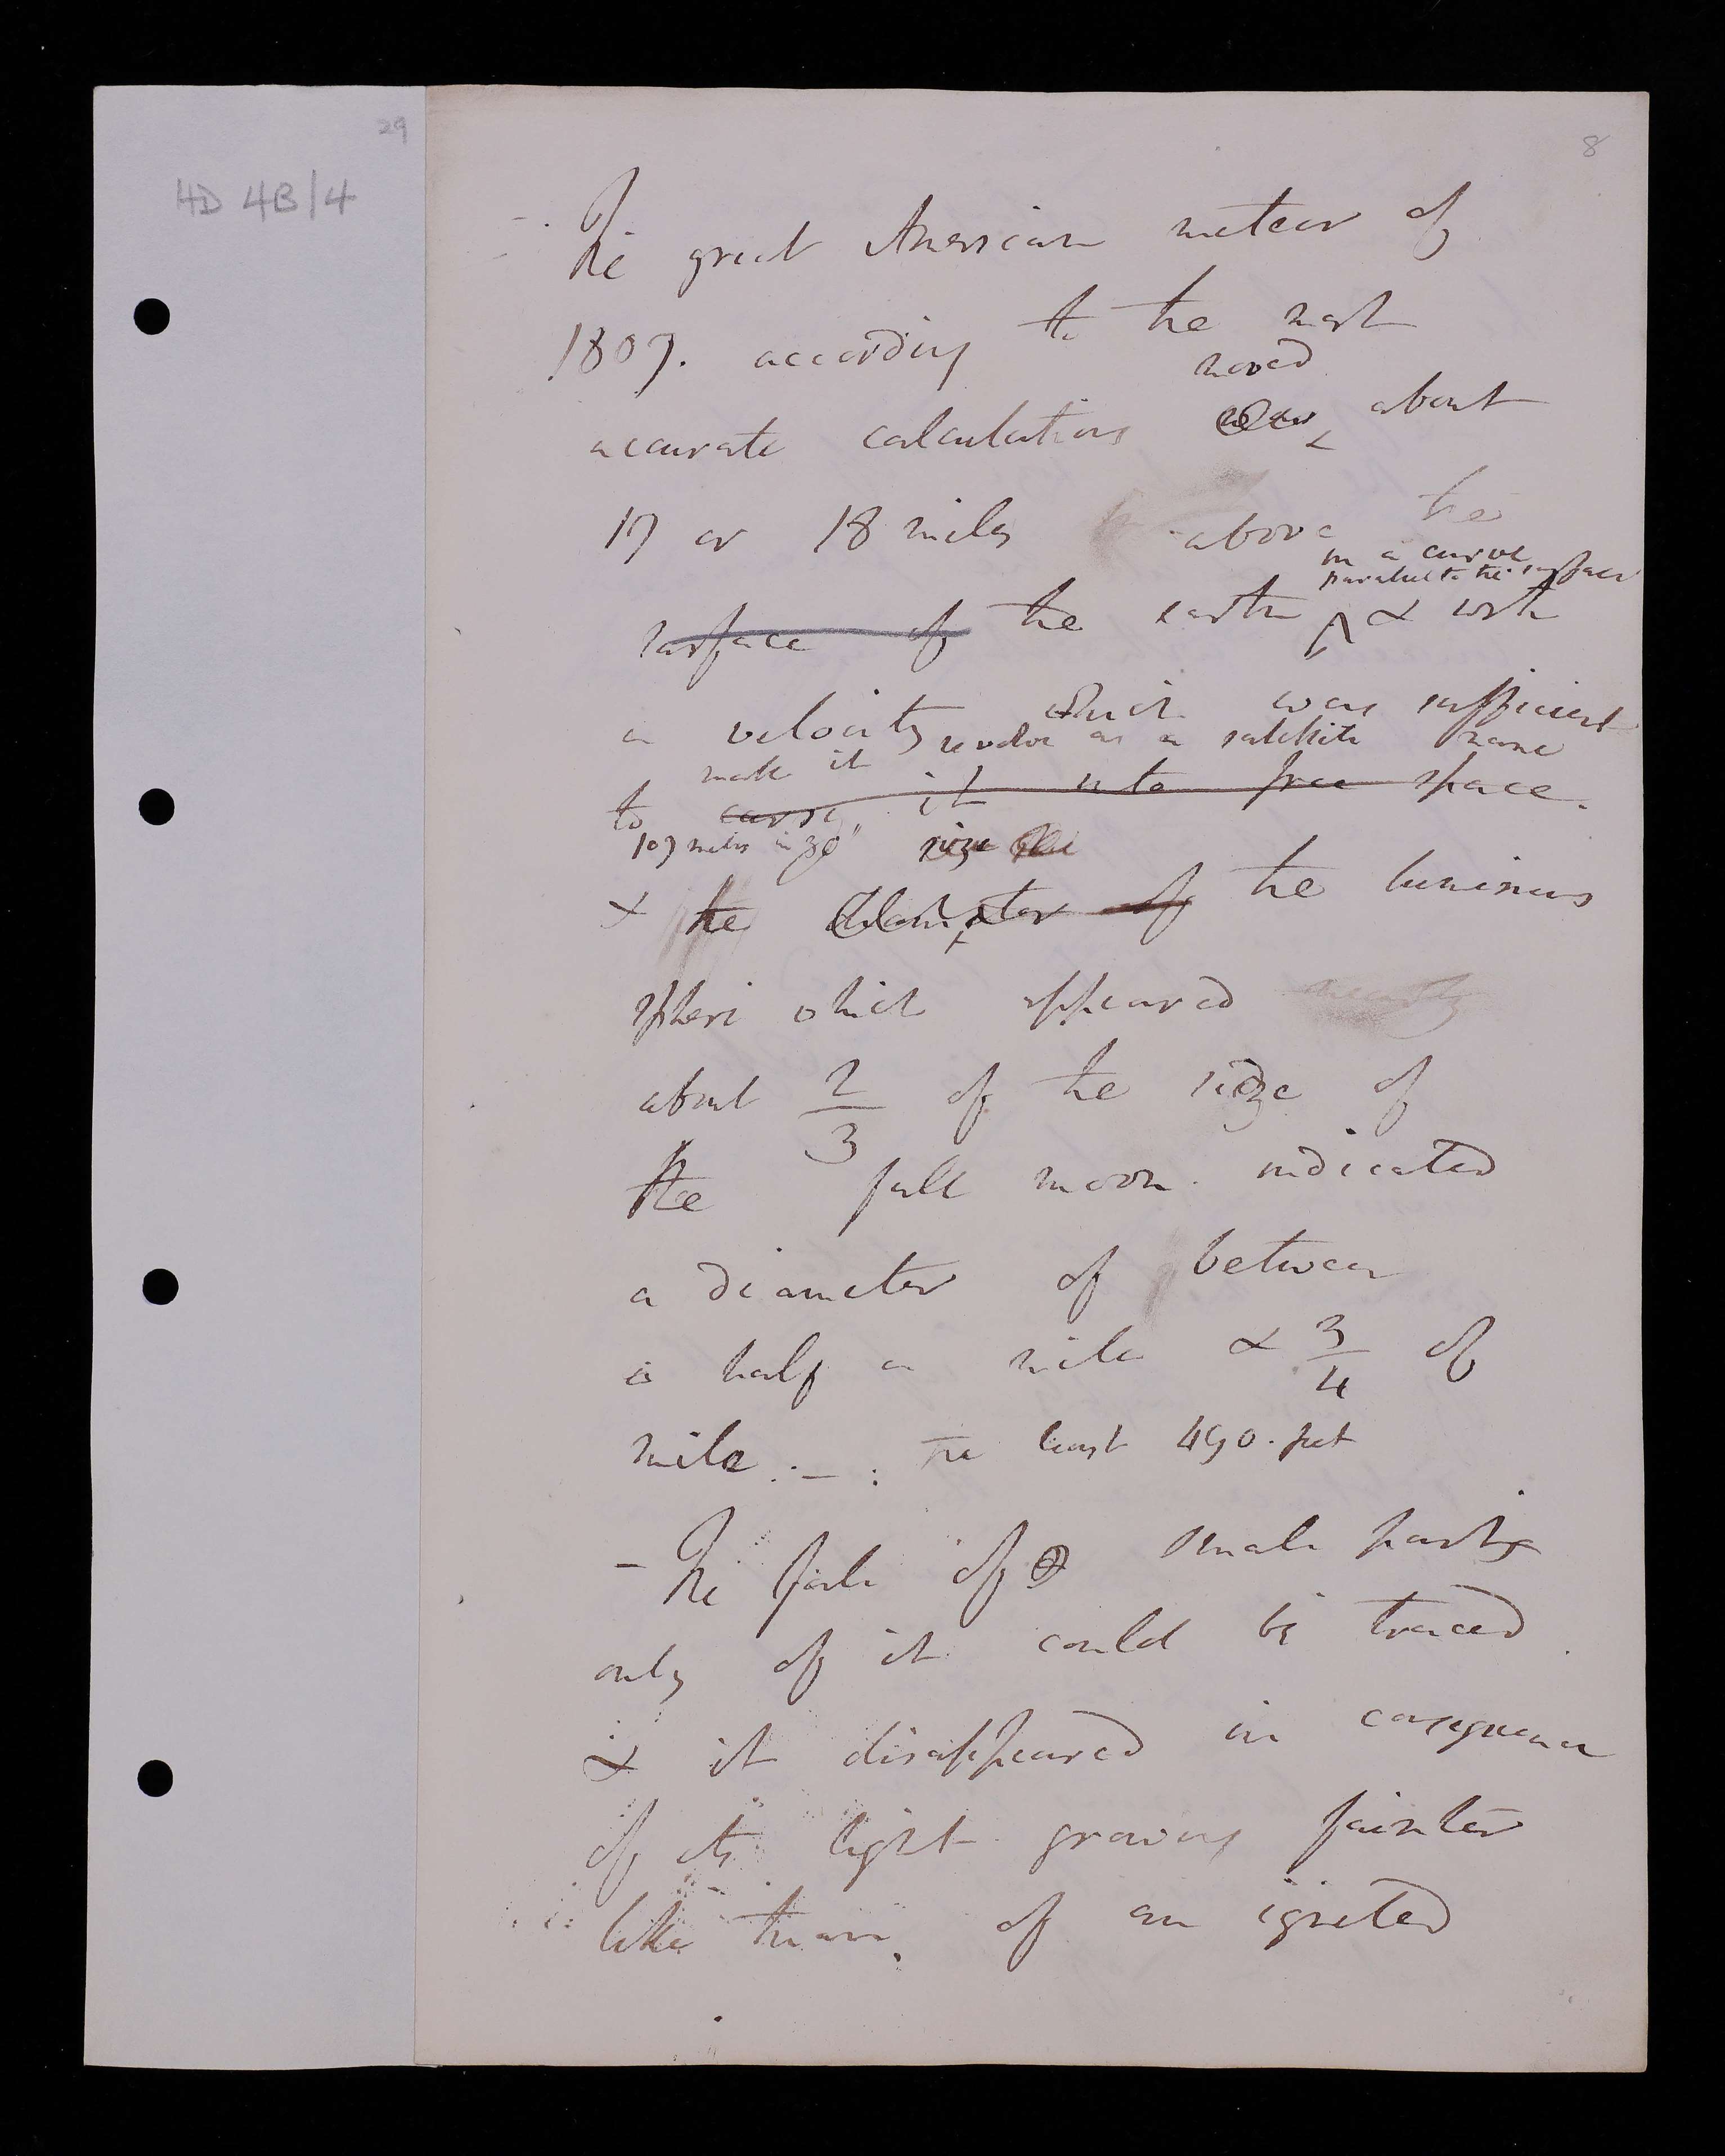 29
8
HD 4B/4
The great American meteor of
1807. according to the most
moved
accurate calculations about
17 or 18 miles above the
in a curve
parallel to the surface
surface of the earth & with
a velocity which was sufficient
make it revolve as a satellite
to carry it into free space.
107 miles in 30" size
& the diameter of the luminous
sphere which appeared nearly
about 2/3 of the size of
the full moon. indicated
a diameter of between
a half a mile & 3/4 of
mile. — : The least 490. feet
- The fall of small parts
only of it could be traced
& it disappeared in consequence
of its light growing fainter
like that of an ignited